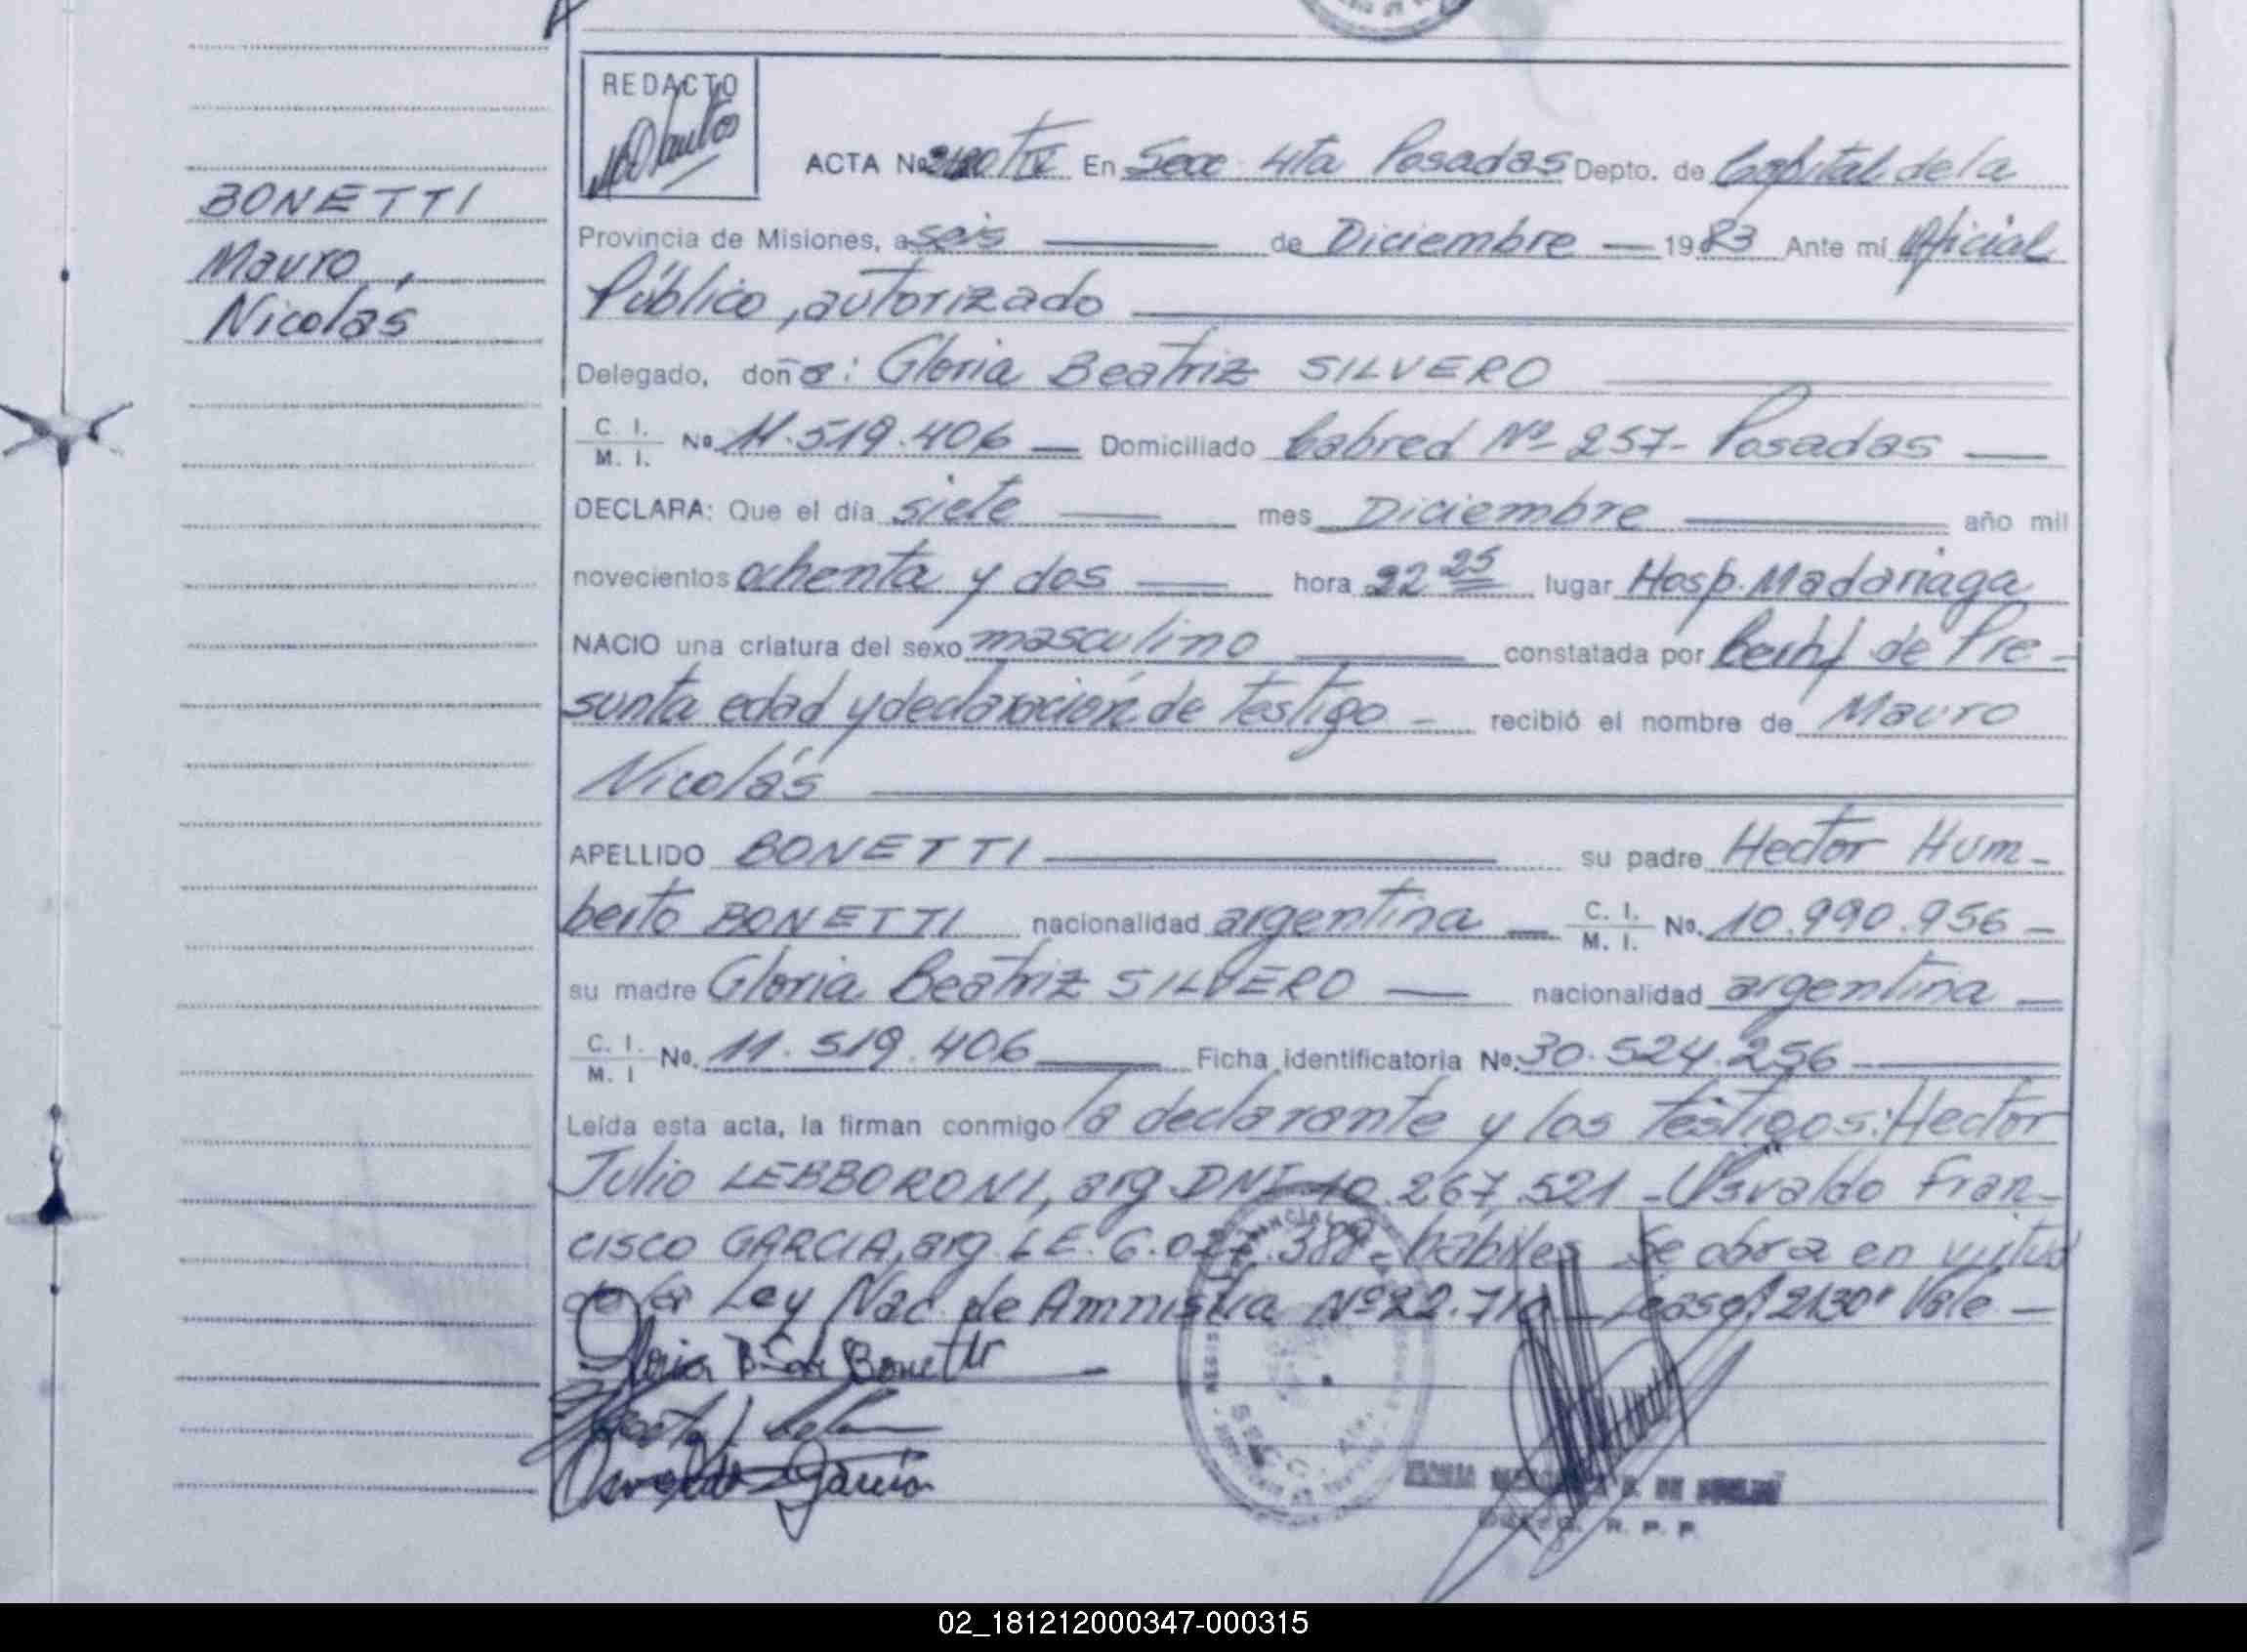 REDACTO
ACTA No En Secc 4ta Posadas Depto. de Capital de la
BONETTI
Mauro,
Nicolás
Provincia de Misiones, a seis de Diciembre 1983 Ante mí Oficial
Público, autorizado
Delegado, doña: Gloria Beatriz SILVERO
C. I. M. I. No 11.519.406 Domiciliado Cabred Nº 257- Posadas
DECLARA: Que el día siete mes Diciembre año mil
novecientos ochenta y dos hora 22 25 lugar Hosp. Madariaga
NACIO una criatura del sexo masculino constatada por de Pre-
sunta edad y declaración de testigo recibió el nombre de Mauro
Nicolás
APELLIDO BONETTI su padre Hector Hum-
berto BONETTI nacionalidad argentina C. I. M. I. No. 10.990.956
su madre Gloria Beatriz SILVERO nacionalidad argentina
C. I. M. I No. 11.519.406 Ficha identificatoria No. 30.524.256
Leída esta acta, la firman conmigo la declarante y los testigos: Hector
Julio LEBBORONI, arg. DNI 10.267.521 - Osvaldo Fran-
cisco GARCIA, arg. LE. 6.027.388 - hábiles Se obra en virtud
de la Ley Nac. de Amnistia Nº 22. Lease: "2130" Vale
Gloria B S de Bonetti
Osvaldo Garcia
R. P. P.
02_181212000347-000315